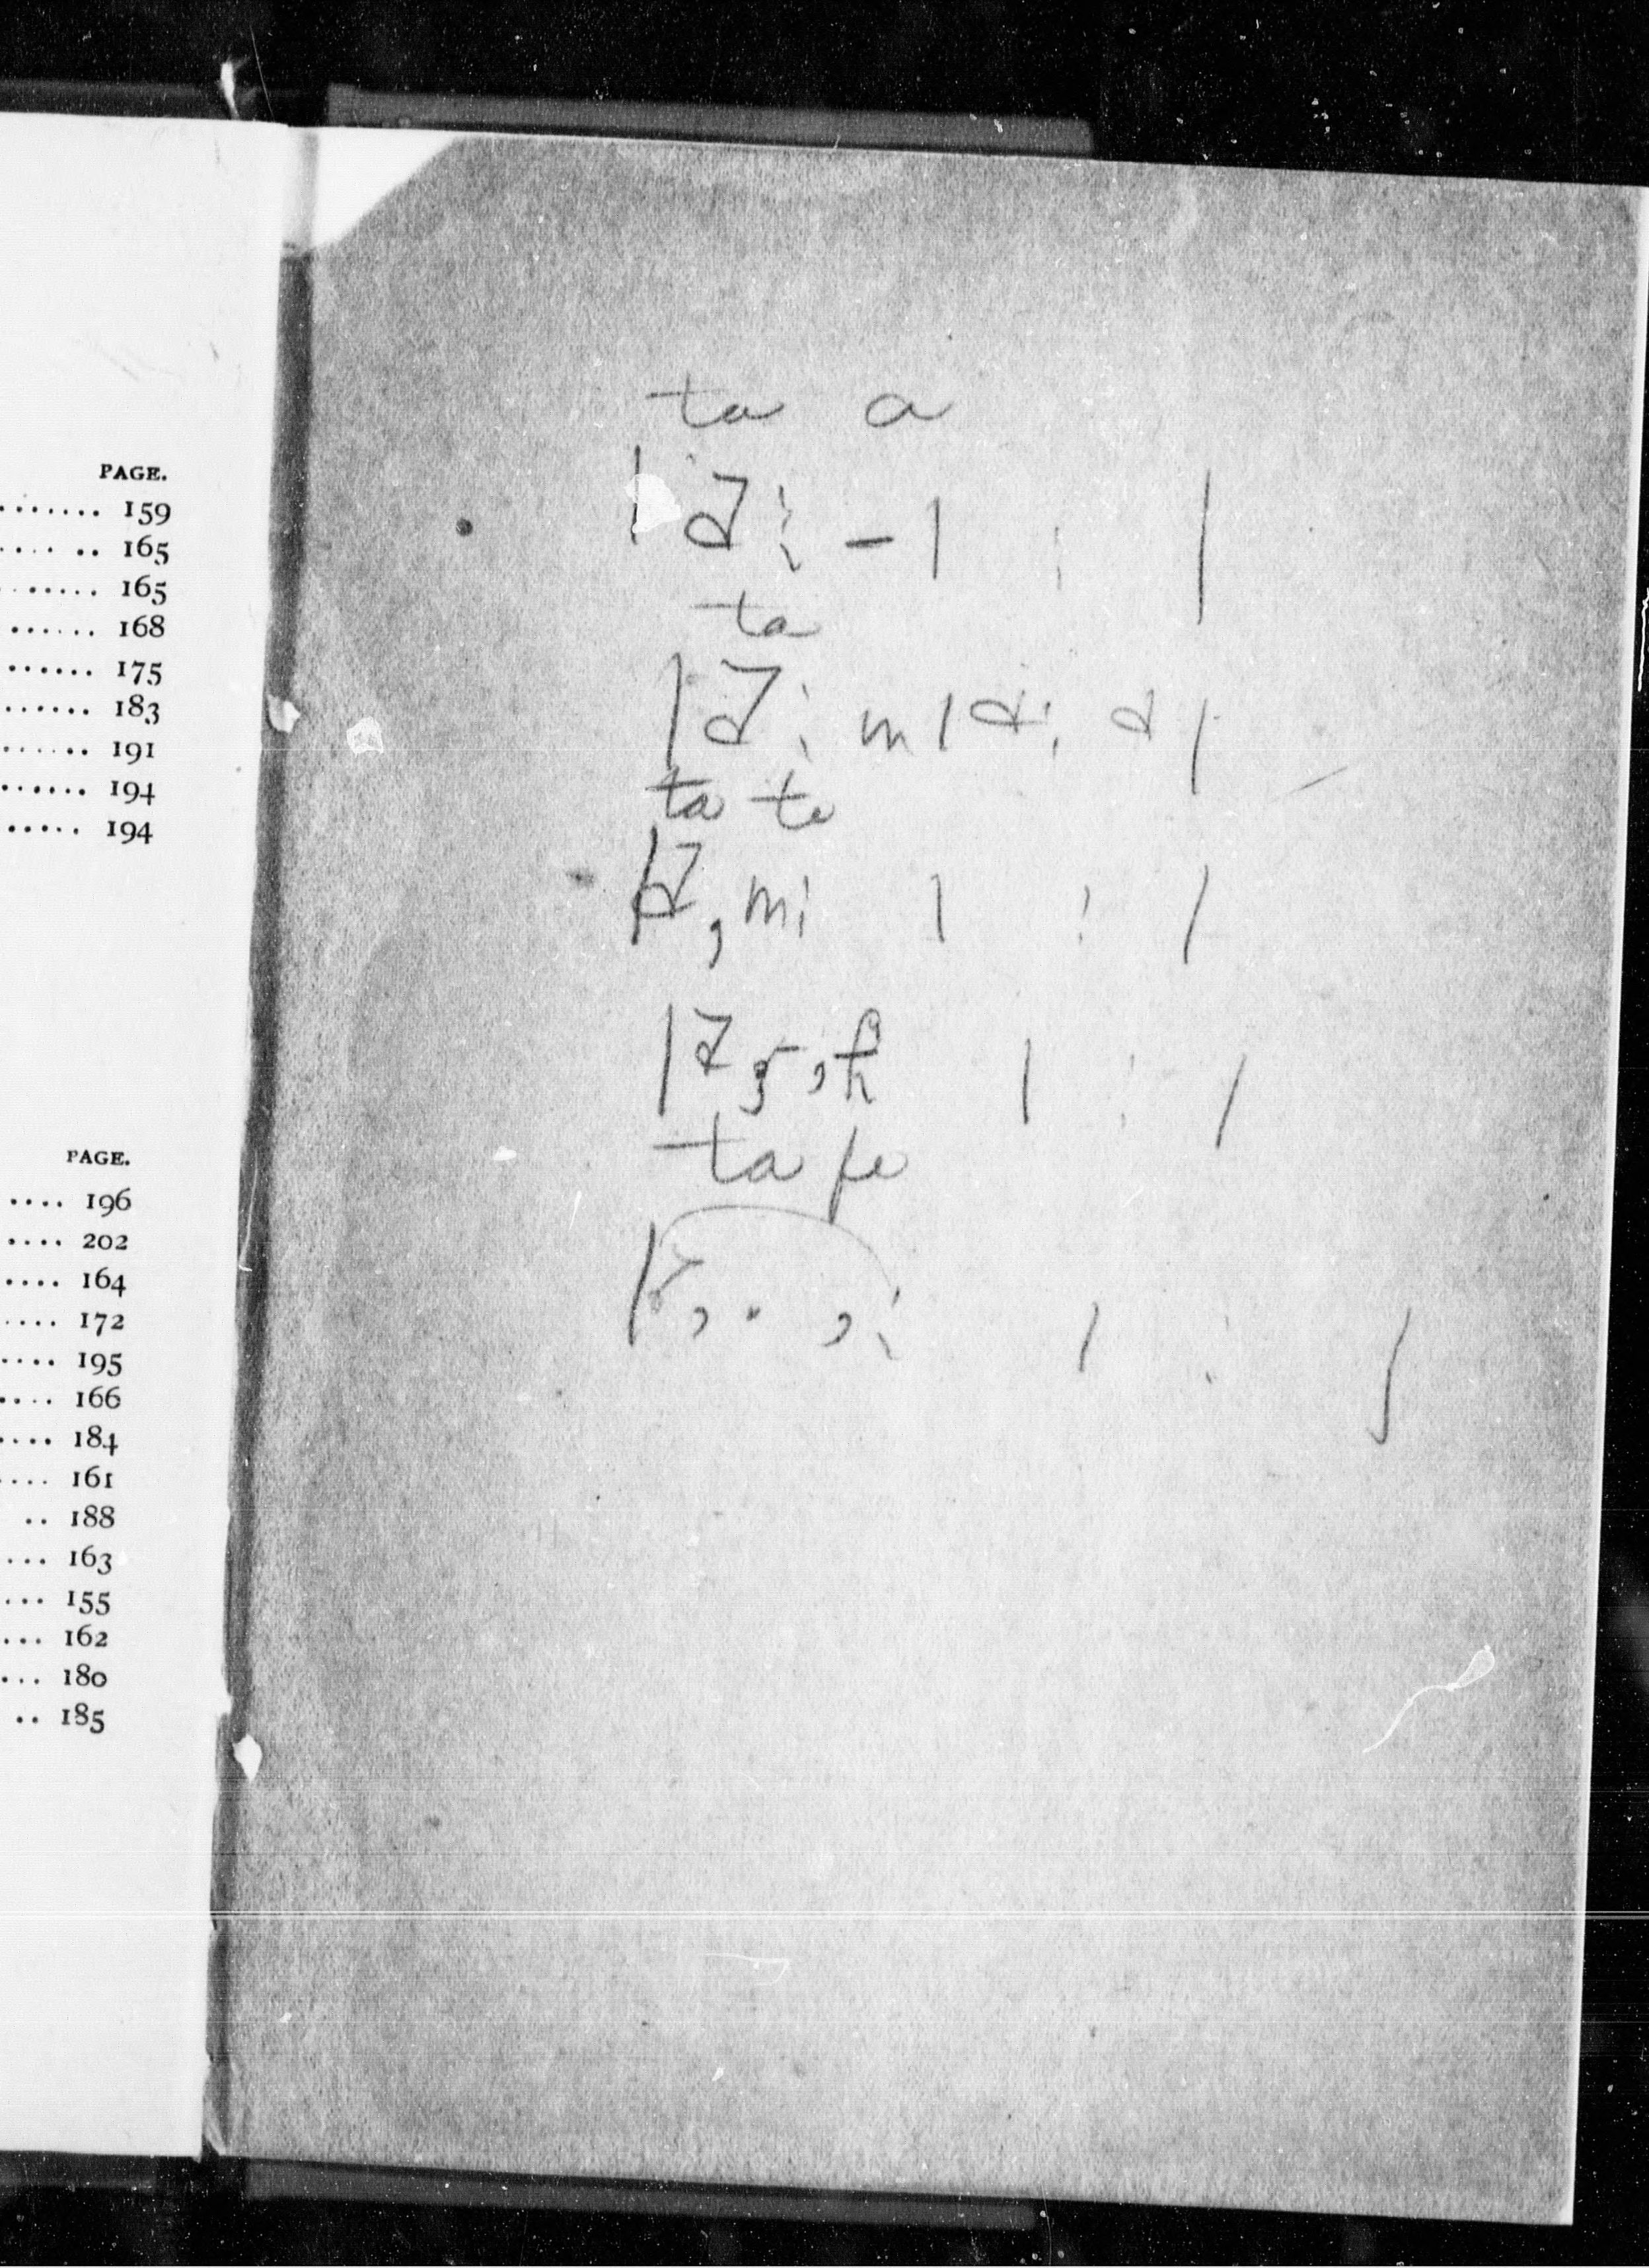 PAGE.
....... 159
.... .. 165
...... 165
...... 168
...... 175
...... 183
...... 191
...... 194
..... 194
PAGE.
.... 196
.... 202
.... 164
.... 172
.... 195
.... 166
.... 184
.... 161
.. 188
... 163
... 155
... 162
... 180
.. 185
ta a
| d : - | : |
ta
| d : m | d : d |
ta te
| d , m : | : |
| : |
ta fe
| , . , : | : |